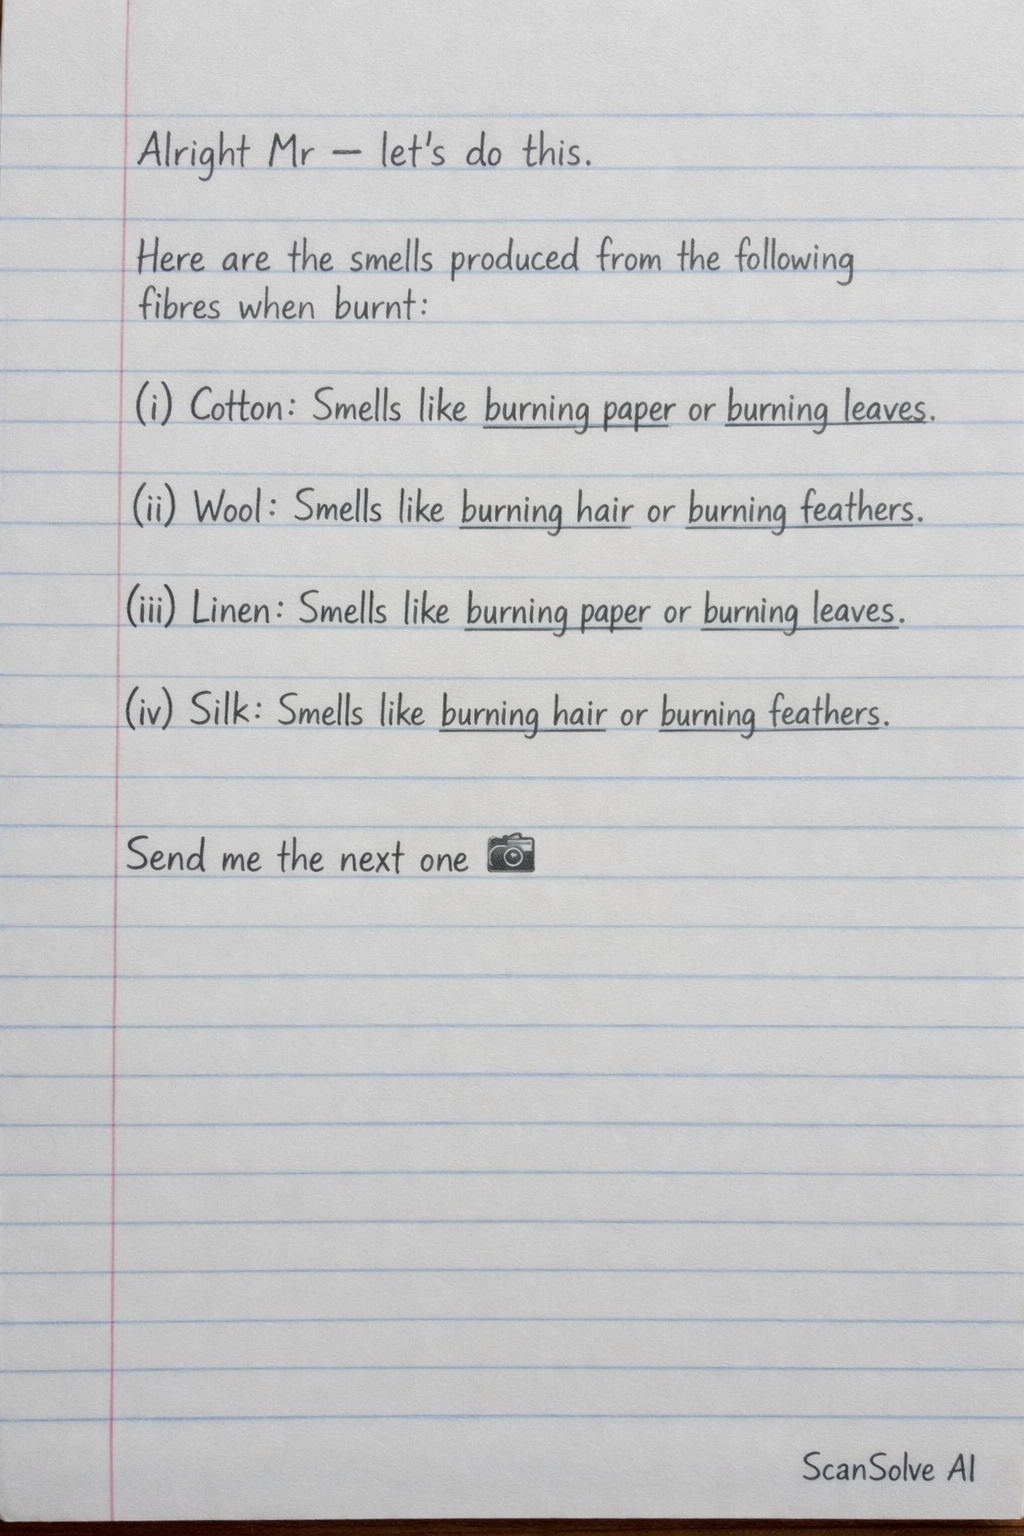 Alright Mr — let's do this.
Here are the smells produced from the following
fibres when burnt:
(i) Cotton: Smells like burning paper or burning leaves.
(ii) Wool: Smells like burning hair or burning feathers.
(iii) Linen: Smells like burning paper or burning leaves.
(iv) Silk: Smells like burning hair or burning feathers.
Send me the next one 📷
ScanSolve AI